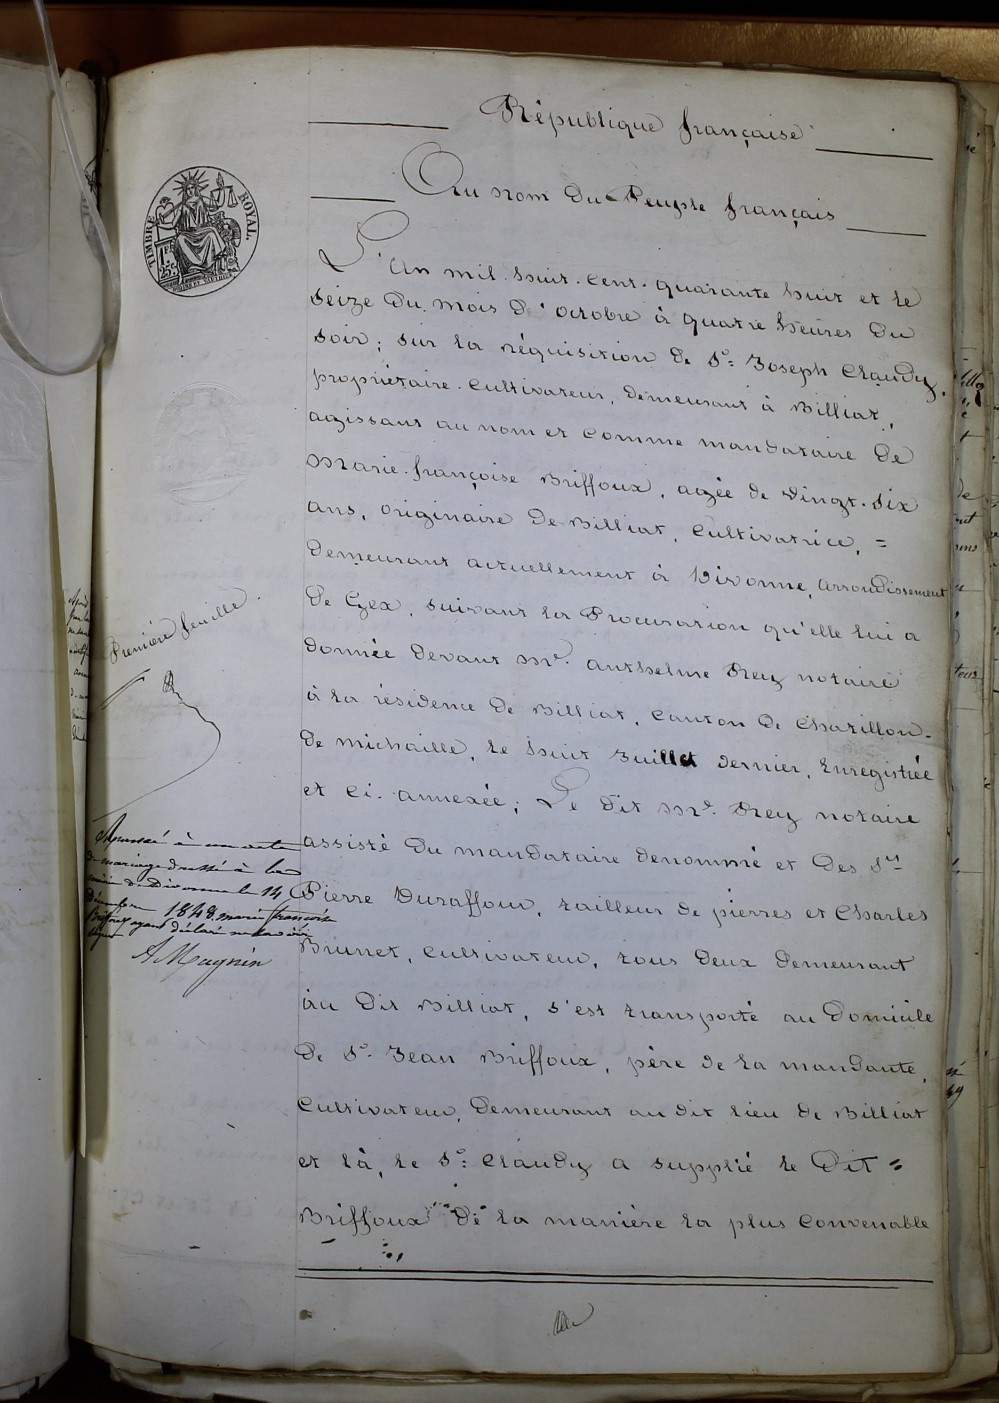 République française
Au nom du Peuple français
TIMBRE ROYAL.
1 FR
25 C
L'an mil huit cent quarante huit et le
seize du mois d'octobre à quatre heures du
soir; sur la réquisition de Sr. Joseph Claudy,
propriétaire cultivateur, demeurant à Billiat,
agissant au nom et comme mandataire de
Marie-françoise Briffoux, agée de vingt-six
ans, originaire de Billiat, cultivatrice, =
demeurant actuellement à Divonne, arrondissement
de Gex, suivant la Procuration qu'elle lui a
donnée devant Mr. Anthelme Rey notaire
à la résidence de Billiat, canton de Chatillon-
de michaille, le huit Juillet dernier, Enregistrée
et ci-annexée; Le dit Mr. Rey notaire
assisté du mandataire denommé et des Srs
Pierre Duraffour, tailleur de pierres et Charles
Brunet, cultivateur, tous deux demeurant
au dit Billiat, s'est transporté au domicile
de Sr. Jean Briffoux, père de la mandante,
cultivateur, demeurant au dit lieu de Billiat
et là, le Sr. Claudy a supplié le Dit =
Briffoux de la manière la plus convenable
Première feuille.
Annexé à un acte
de mariage dressé à la
mairie de Divonne le 14
décembre 1848. marie françoise
Briffoux ayant déclaré ne savoir
signer
A Magnin